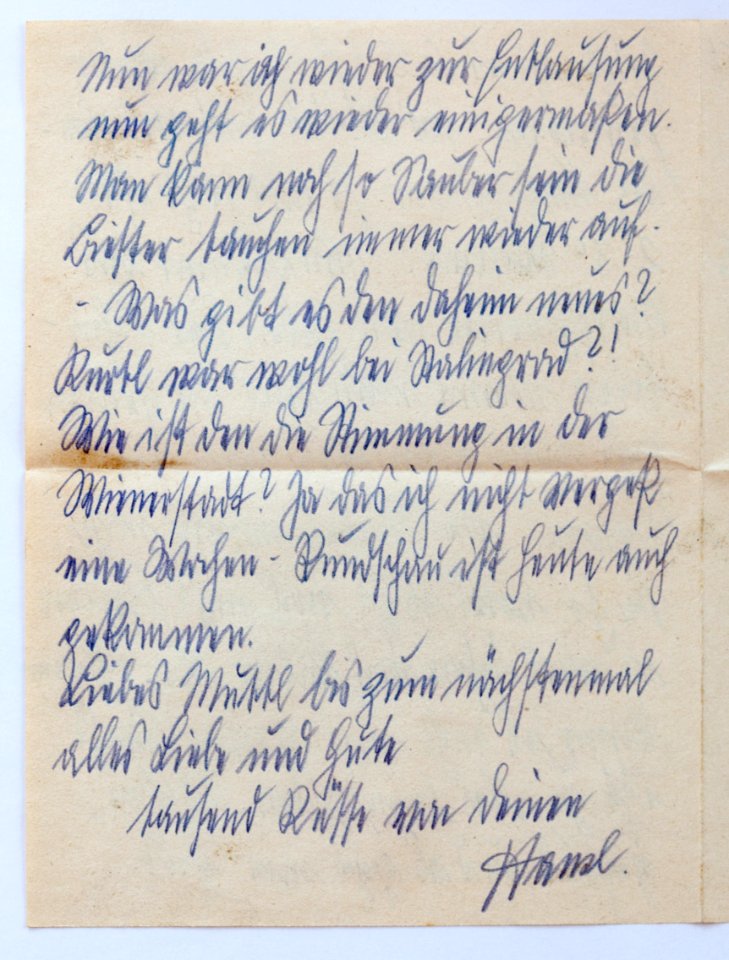 Nun war ich wieder zur Entlausung
nun geht es wieder einigermaßen.
Man kann noch so Sauber sein die
Biester tauchen immer wieder auf.
- Was gibt es den daheim neues?
Kurtl war wohl bei Stalingrad?!
Wie ist den die Stimmung in der
Wienerstadt? Ja das ich nicht vergeß
eine Wochen-Rundschau ist heute auch
gekommen.
Liebes Muttl bis zum nächstenmal
alles Liebe und Gute
tausend Küsse von deinen